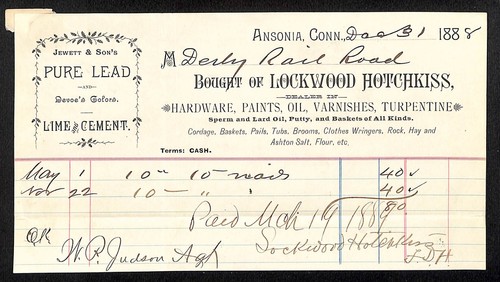 Ansonia, Conn., Dec 31 1888
M Derby Rail Road
Bought of LOCKWOOD HOTCHKISS,
DEALER IN
HARDWARE, PAINTS, OIL, VARNISHES, TURPENTINE
Sperm and Lard Oil, Putty, and Baskets of All Kinds.
Cordage, Baskets, Pails, Tubs, Brooms, Clothes Wringers, Rock, Hay and
Ashton Salt, Flour, etc.
Terms: CASH.
JEWETT & SON'S
PURE LEAD
AND
Devoe's Colors.
LIME AND CEMENT.
May 1 10 10 nails 40
Nov 22 10 " 40
80
Paid Mch 19 1889
Lockwood Hotchkiss
OK
W. P. Judson Agt